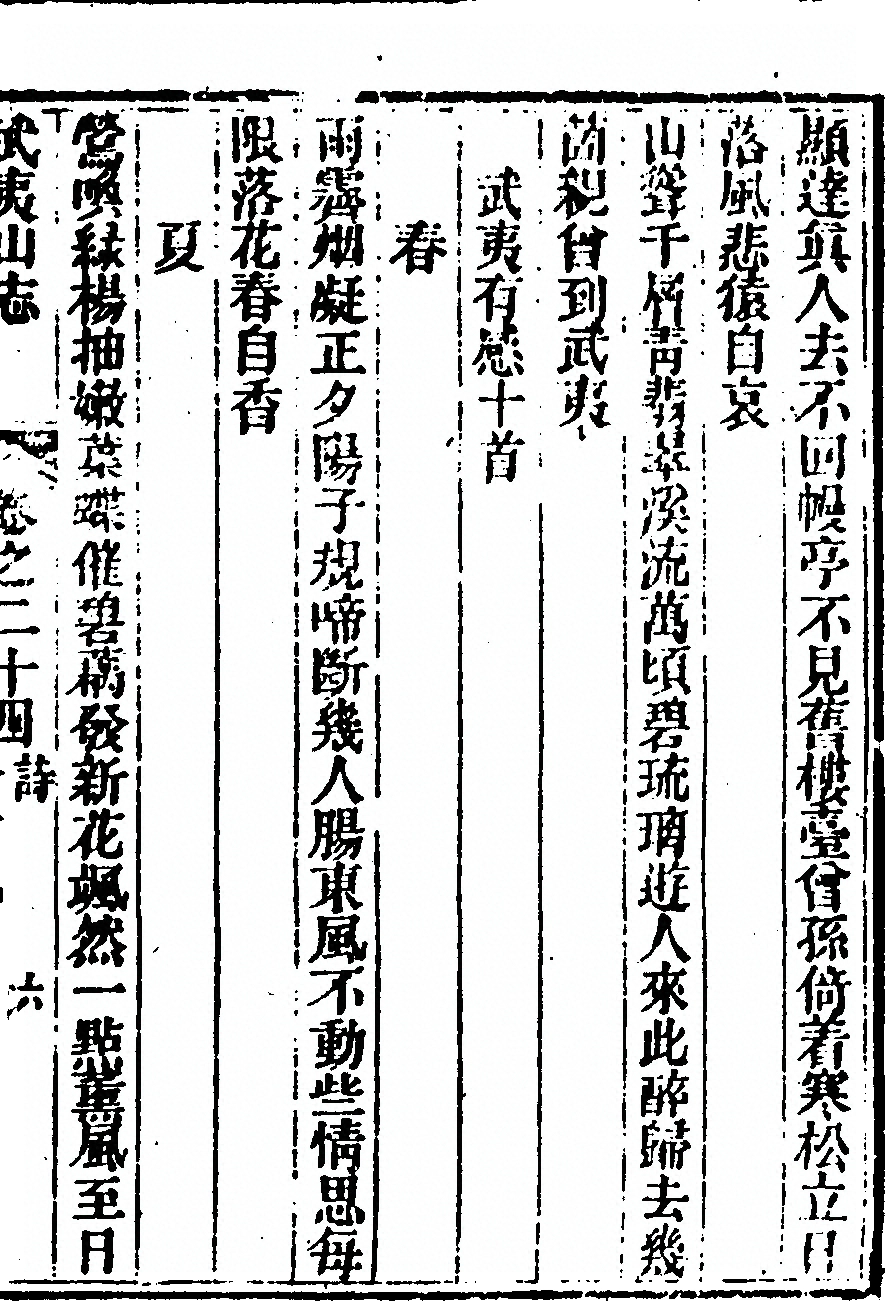 顯達眞人去不回幔亭不見舊樓臺曾孫倚着寒松立日
落風悲猿自哀
山聳千層靑翡翠溪流萬頃碧琉璃遊人來此醉歸去幾
箇親曾到武夷
武夷有感十首
春
雨霽烟凝正夕陽子規啼斷幾人腸東風不動些情思每
限落花春自香
夏
鶯喚緑楊抽嫩葉蝶催碧藕發新花颯然一點薫風至日
武夷山志
卷之二十四
詩
六